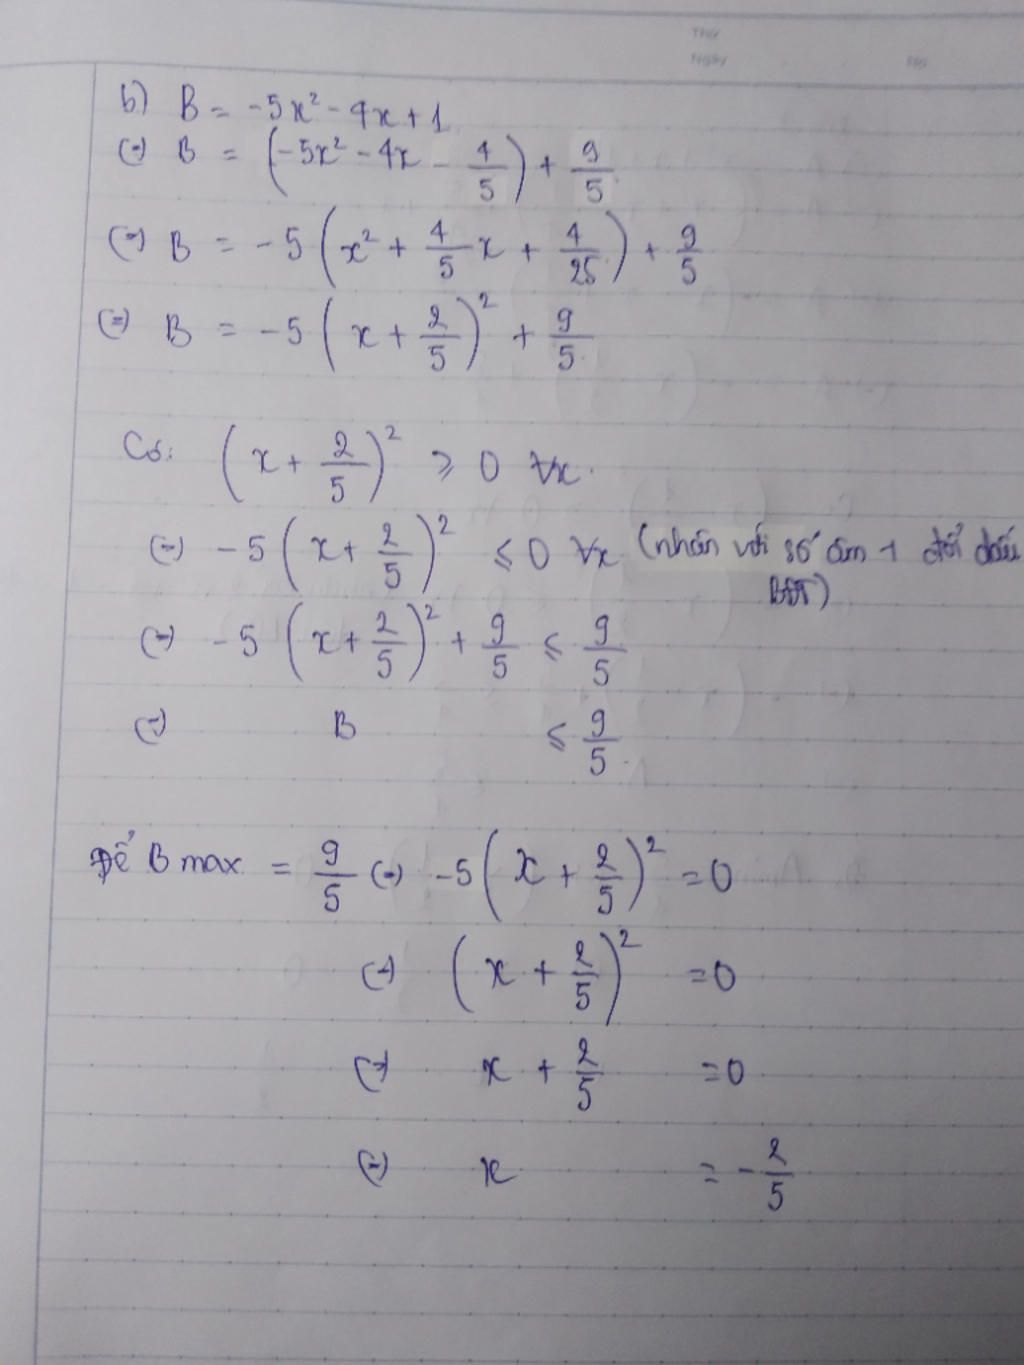 Thứ
Ngày No
b) B = -5x² - 4x + 1
(=) B = (-5x² - 4x - 4/5) + 9/5
(=) B = -5(x² + 4/5 x + 4/25) + 9/5
(=) B = -5(x + 2/5)² + 9/5
Có: (x + 2/5)² ≥ 0 ∀x.
(=) -5(x + 2/5)² ≤ 0 ∀x (nhân với số âm → đổi dấu
BĐT)
(=) -5(x + 2/5)² + 9/5 ≤ 9/5
(=) B ≤ 9/5
Để B max = 9/5 (=) -5(x + 2/5)² = 0
(=) (x + 2/5)² = 0
(=) x + 2/5 = 0
(=) x = -2/5